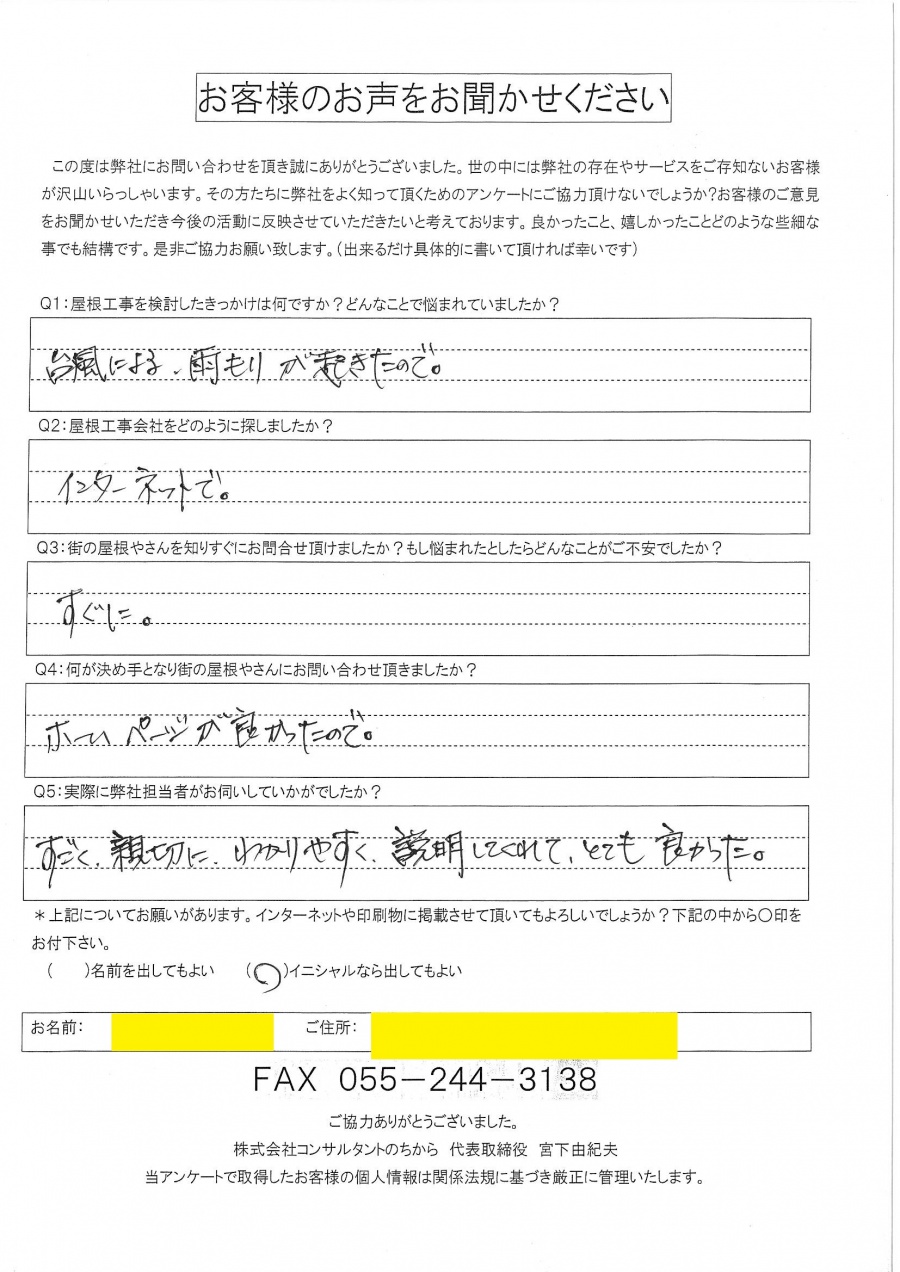 お客様のお声をお聞かせください
この度は弊社にお問い合わせを頂き誠にありがとうございました。世の中には弊社の存在やサービスをご存知ないお客様
が沢山いらっしゃいます。その方たちに弊社をよく知って頂くためのアンケートにご協力頂けないでしょうか?お客様のご意見
をお聞かせいただき今後の活動に反映させていただきたいと考えております。良かったこと、嬉しかったことどのような些細な
事でも結構です。是非ご協力お願い致します。(出来るだけ具体的に書いて頂ければ幸いです)
Q1:屋根工事を検討したきっかけは何ですか?どんなことで悩まれていましたか?
台風による、雨もりが起きたので。
Q2:屋根工事会社をどのように探しましたか?
インターネットで。
Q3:街の屋根やさんを知りすぐにお問合せ頂けましたか?もし悩まれたとしたらどんなことがご不安でしたか?
すぐに。
Q4:何が決め手となり街の屋根やさんにお問い合わせ頂きましたか?
ホームページが良かったので。
Q5:実際に弊社担当者がお伺いしていかがでしたか?
すごく、親切に、わかりやすく、説明してくれて、とても良かった。
*上記についてお願いがあります。インターネットや印刷物に掲載させて頂いてもよろしいでしょうか?下記の中から〇印を
お付下さい。
( )名前を出してもよい (〇)イニシャルなら出してもよい
お名前: ご住所:
FAX 055-244-3138
ご協力ありがとうございました。
株式会社コンサルタントのちから 代表取締役 宮下由紀夫
当アンケートで取得したお客様の個人情報は関係法規に基づき厳正に管理いたします。